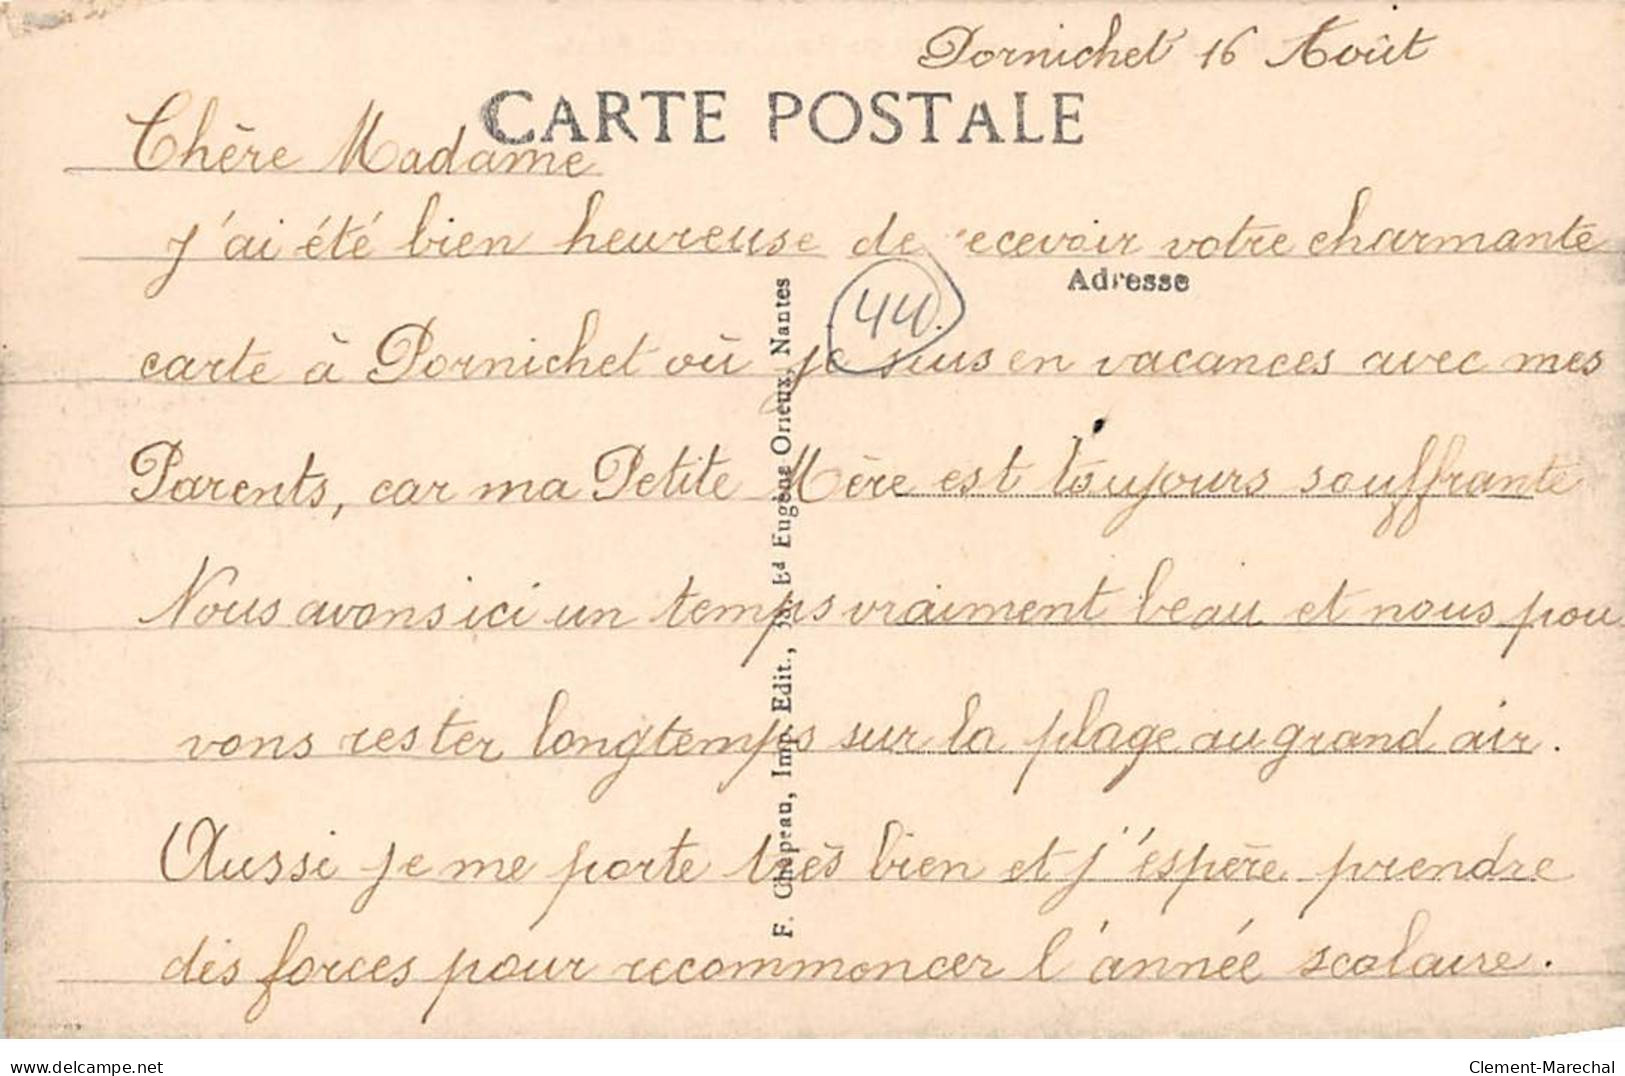 Pornichet 16 Août
CARTE POSTALE
Chère Madame
J'ai été bien heureuse de recevoir votre charmante
Adresse
44
carte à Pornichet où je suis en vacances avec mes
Parents, car ma Petite Mère est toujours souffrante
Nous avons ici un temps vraiment beau et nous pou
vons rester longtemps sur la plage au grand air.
Aussi je me porte très bien et j'espère prendre
des forces pour recommoncer l'année scolaire.
F. Chapeau, Imp. Edit., Bd Eugène Orieux, Nantes
delcampe.net
Clement-Marechal